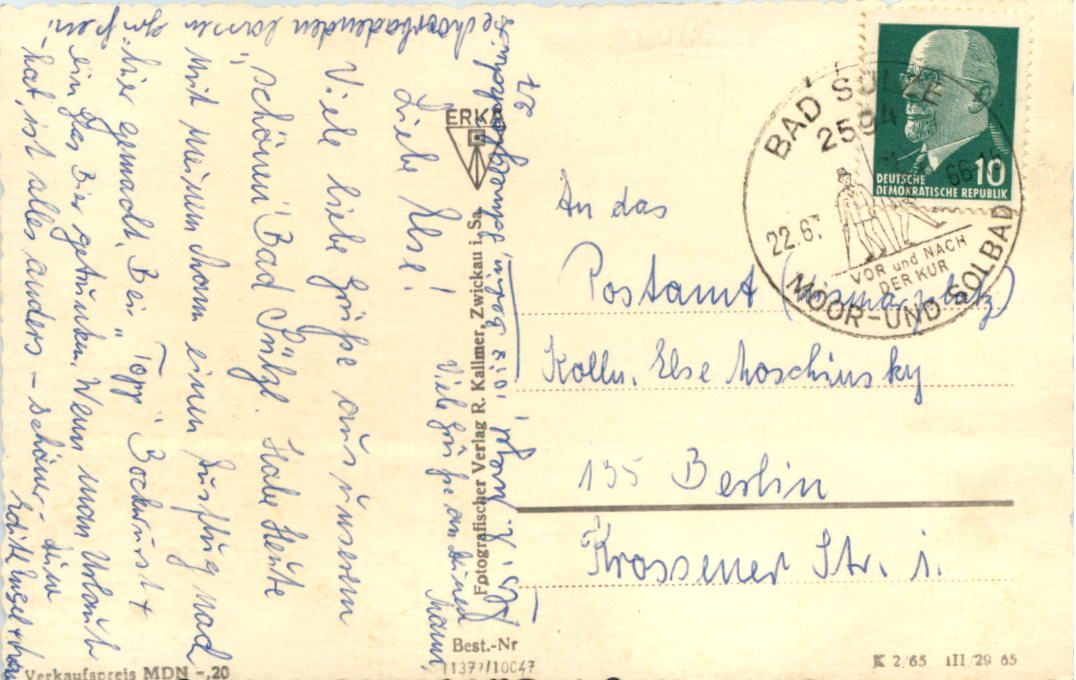 Liebe Else!
Viele liebe Grüße aus unserem
"schönen" Bad Sülze. Habe heute
mit meinem Mann einen Ausflug nach
hier gemacht. Bei "Topp" Bockwurst +
ein Glas Bier getrunken. Wenn man Urlaub
hat, ist alles anders – schöner. Deine
Viele Grüße an Deinen Mann,
ERKA
Fotografischer Verlag R. Kallmer, Zwickau i. Sa.
Best.-Nr
Verkaufspreis MDN -,20
BAD SÜLZE
2594
22.6.
66-16
VOR und NACH
DER KUR
MOOR-UND SOLBAD
DEUTSCHE
DEMOKRATISCHE REPUBLIK
10
An das
Postamt
Kolln. Else Moschinsky
135 Berlin
Krossener Str. 1.
K 2/65 III/29 65